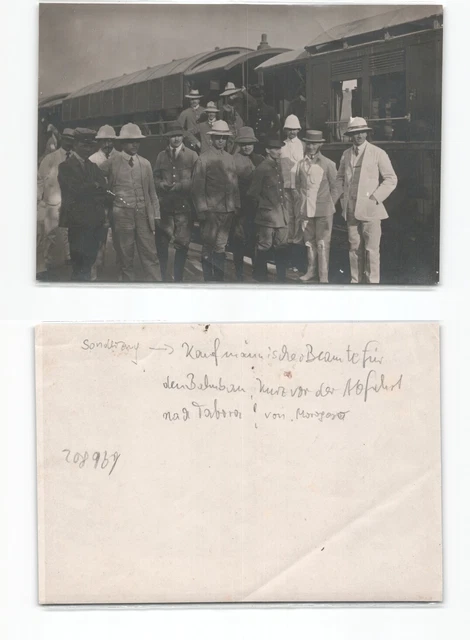 Sonderzug → Kaufmännische Beamte für
den Bahnbau, kurz vor der Abfahrt
nach Tabora! von Morogoro